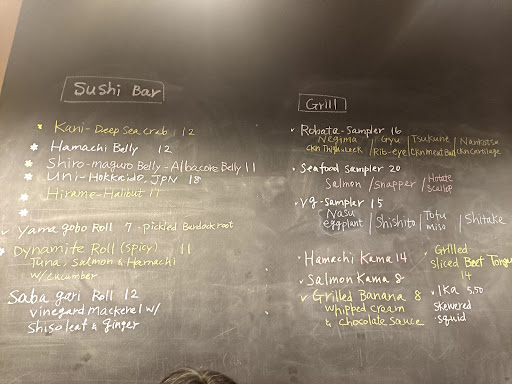 Sushi Bar
Kani - Deep Sea crab 12
Hamachi Belly 12
Shiro-maguro Belly - Albacore Belly 11
Uni - Hokkaido, JPN 18
Hirame - Halibut 17
Yama gobo Roll 7 - pickled Burdock root
Dynamite Roll (spicy) 11
Tuna, Salmon & Hamachi
w/ cucumber
Saba gari Roll 12
vinegard mackerel w/
shiso leaf & ginger
Grill
Robata-Sampler 16
Negima / Gyu / Tsukune / Nankotsu
CKN Thigh & Leek / Rib-eye / CKN meat Ball / CKN cartilage
Seafood Sampler 20
Salmon / Snapper / Hotate
Scallop
Vg-Sampler 15
Nasu
eggplant / Shishito / Tofu
miso / Shitake
Hamachi Kama 14
Salmon Kama 8
Grilled Banana 8
whipped cream
& chocolate sauce
Grilled
sliced Beef Tongue
14
Ika 5.50
skewered
squid